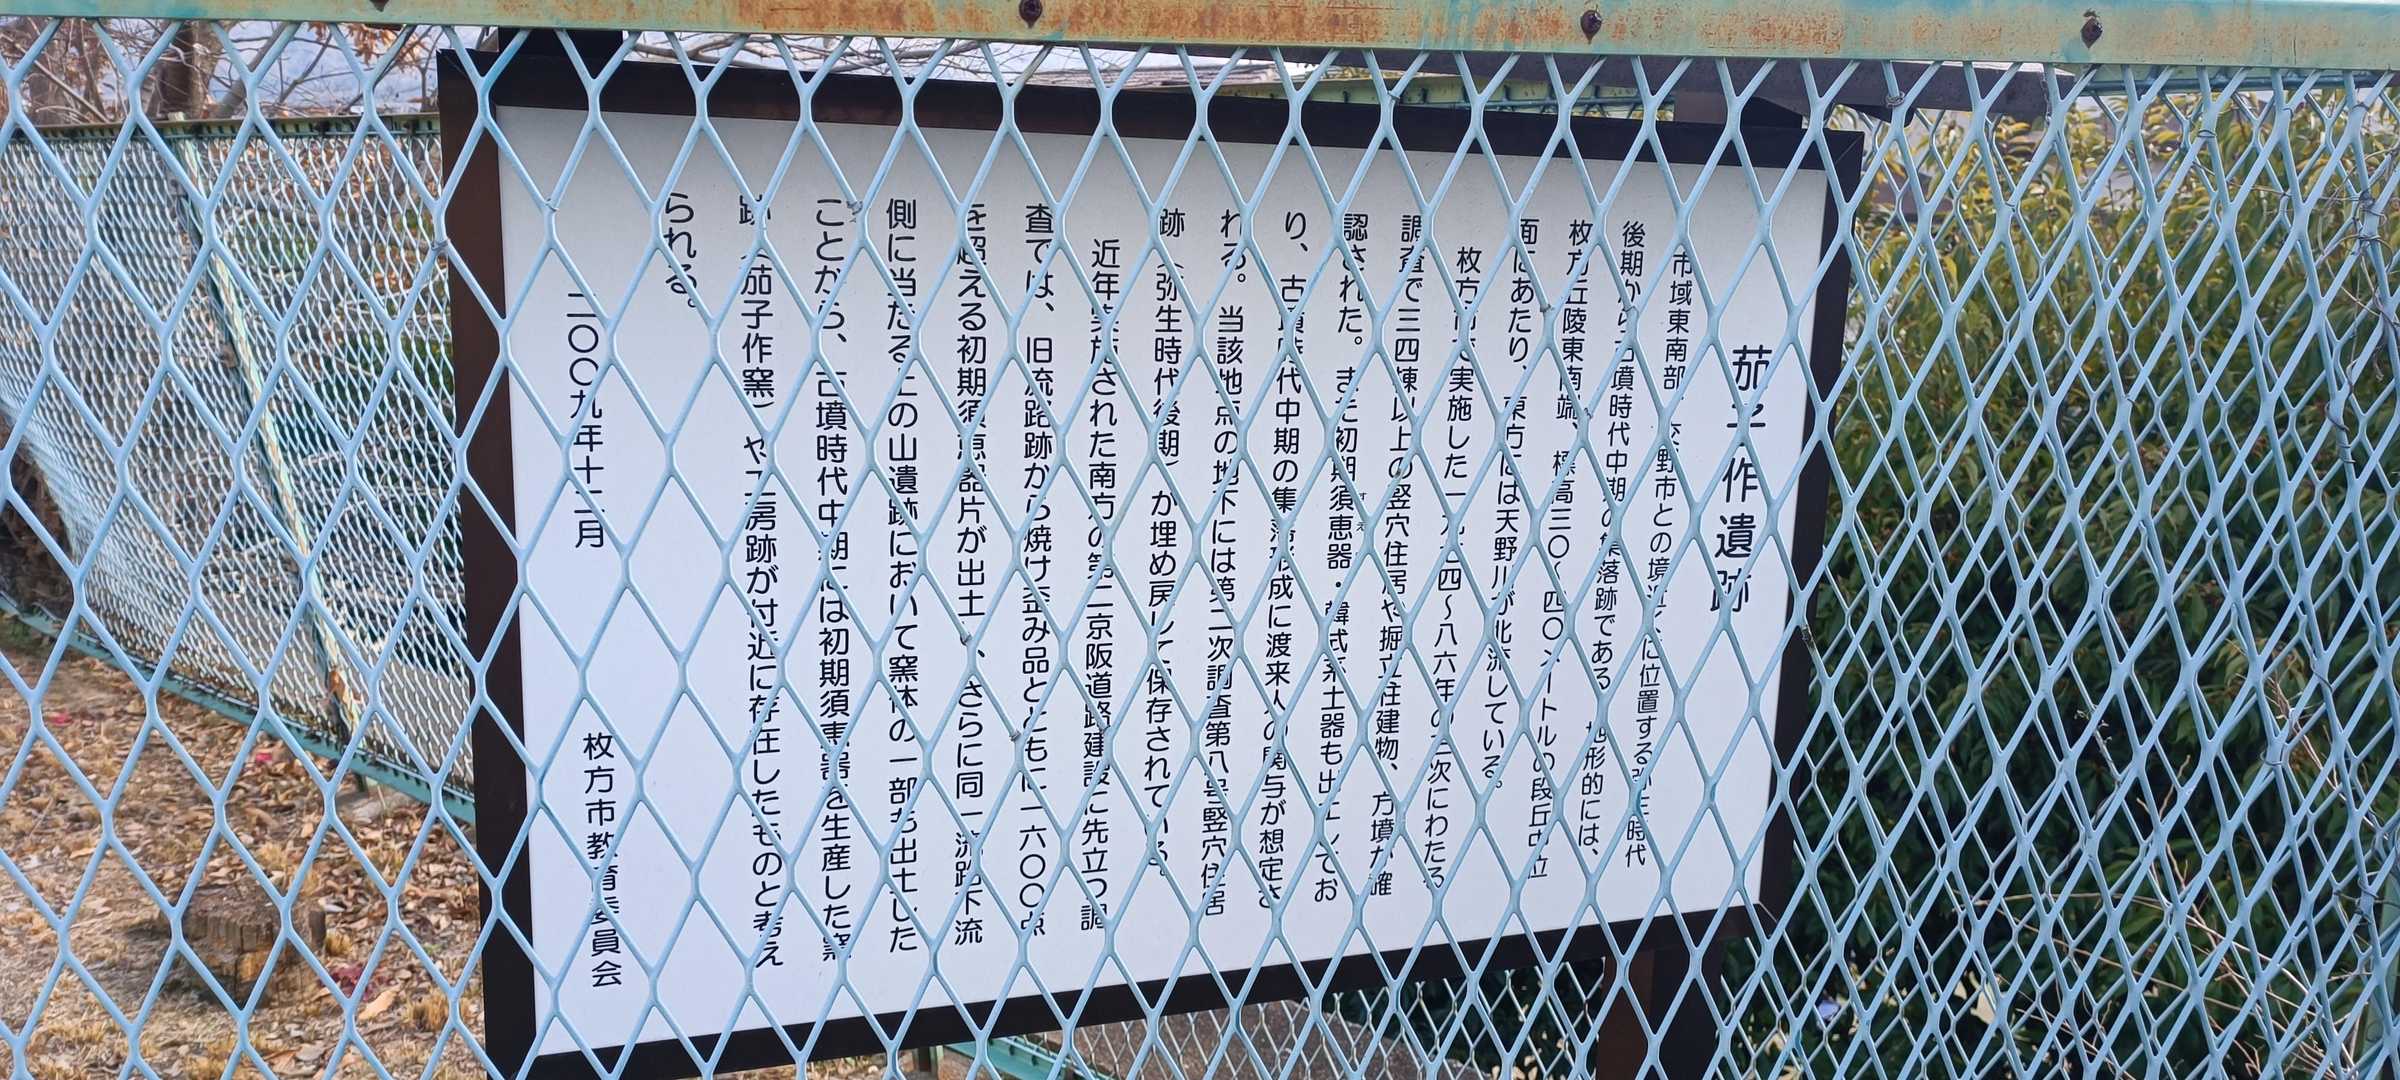 茄子作遺跡
市域東南部、交野市との境近くに位置する弥生時代
後期から古墳時代中期の集落跡である。地形的には、
枚方丘陵東南端、標高三〇〜四〇メートルの段丘中位
面にあたり、東方には天野川が北流している。
枚方市で実施した一九八四〜八六年の二次にわたる
調査で三四棟以上の竪穴住居や掘立柱建物、方墳が確
認された。また初期須恵器・韓式系土器も出土してお
すえ
り、古墳時代中期の集落形成に渡来人の関与が想定さ
れる。当該地点の地下には第二次調査第八号竪穴住居
跡（弥生時代後期）が埋め戻して保存されている。
近年実施された南方の第二京阪道路建設に先立つ調
査では、旧流路跡から焼け歪み品とともに一六〇〇点
を超える初期須恵器片が出土し、さらに同一流路下流
側に当たる上の山遺跡において窯体の一部も出土した
ことから、古墳時代中期には初期須恵器を生産した窯
跡（茄子作窯）や工房跡が付近に存在したものと考え
られる。
二〇〇九年十二月
枚方市教育委員会